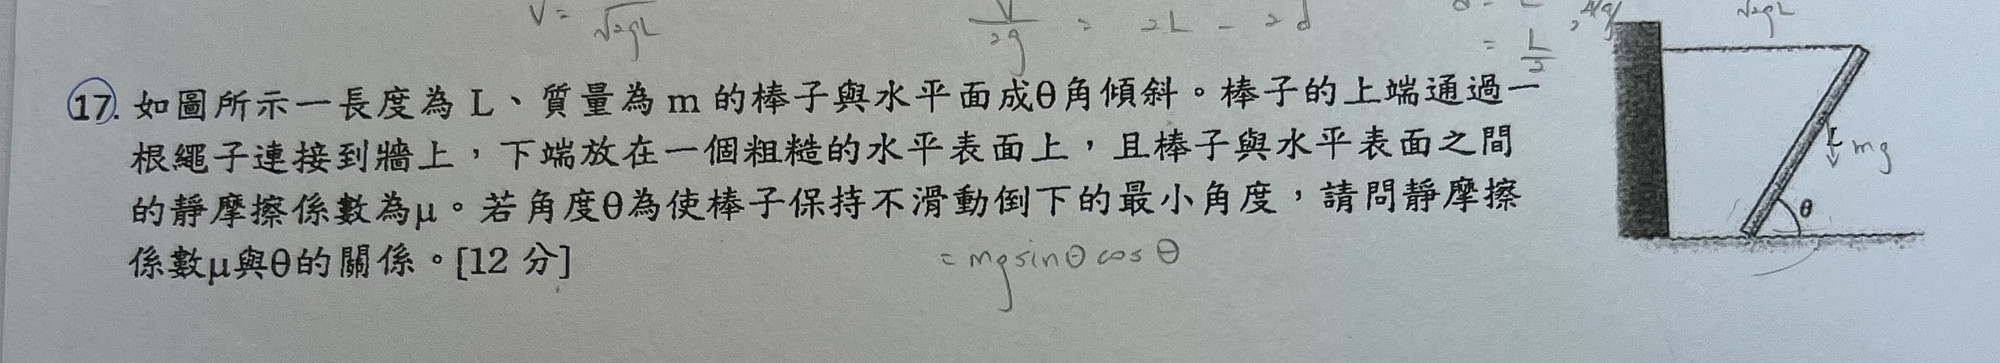 V = √2gL
V/2g = 2L - 2d
= L/2
√2gL
17. 如圖所示一長度為 L、質量為 m 的棒子與水平面成θ角傾斜。棒子的上端通過一
根繩子連接到牆上,下端放在一個粗糙的水平表面上,且棒子與水平表面之間
的靜摩擦係數為μ。若角度θ為使棒子保持不滑動倒下的最小角度,請問靜摩擦
係數μ與θ的關係。[12 分]
= mg sinθ cosθ
mg
θ